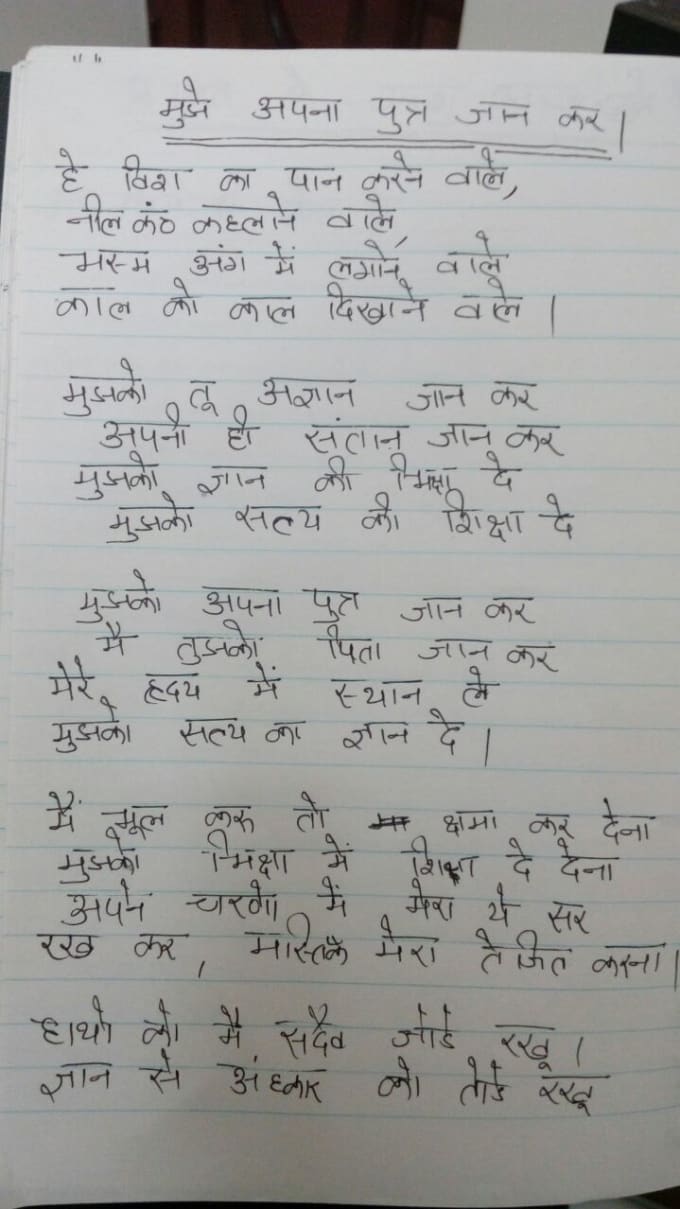 मुझे अपना पुत्र जान कर।
हे विश का पान करने वाले,
नील कंठ कहलाने वाले,
भस्म अंग में लगाने वाले
काल को काल दिखाने वाले।
मुझको तू अज्ञान जान कर
अपनी ही संतान जान कर
मुझको ज्ञान की भिक्षा दे
मुझको सत्य की शिक्षा दे
मुझको अपना पुत्र जान कर
मै तुझको पिता जान कर
मेरे ह्रदय में स्थान ले
मुझको सत्य का ज्ञान दे।
मैं भूल करू तो क्षमा कर देना
मुझको भिक्षा में शिक्षा दे देना
अपने चरणो में मेरा ये सर
रख कर, मस्तिक मेरा तेजित करना।
हाथो को मै सदैव जोडे रखू।
ज्ञान से अंधकार को तोडे रखू